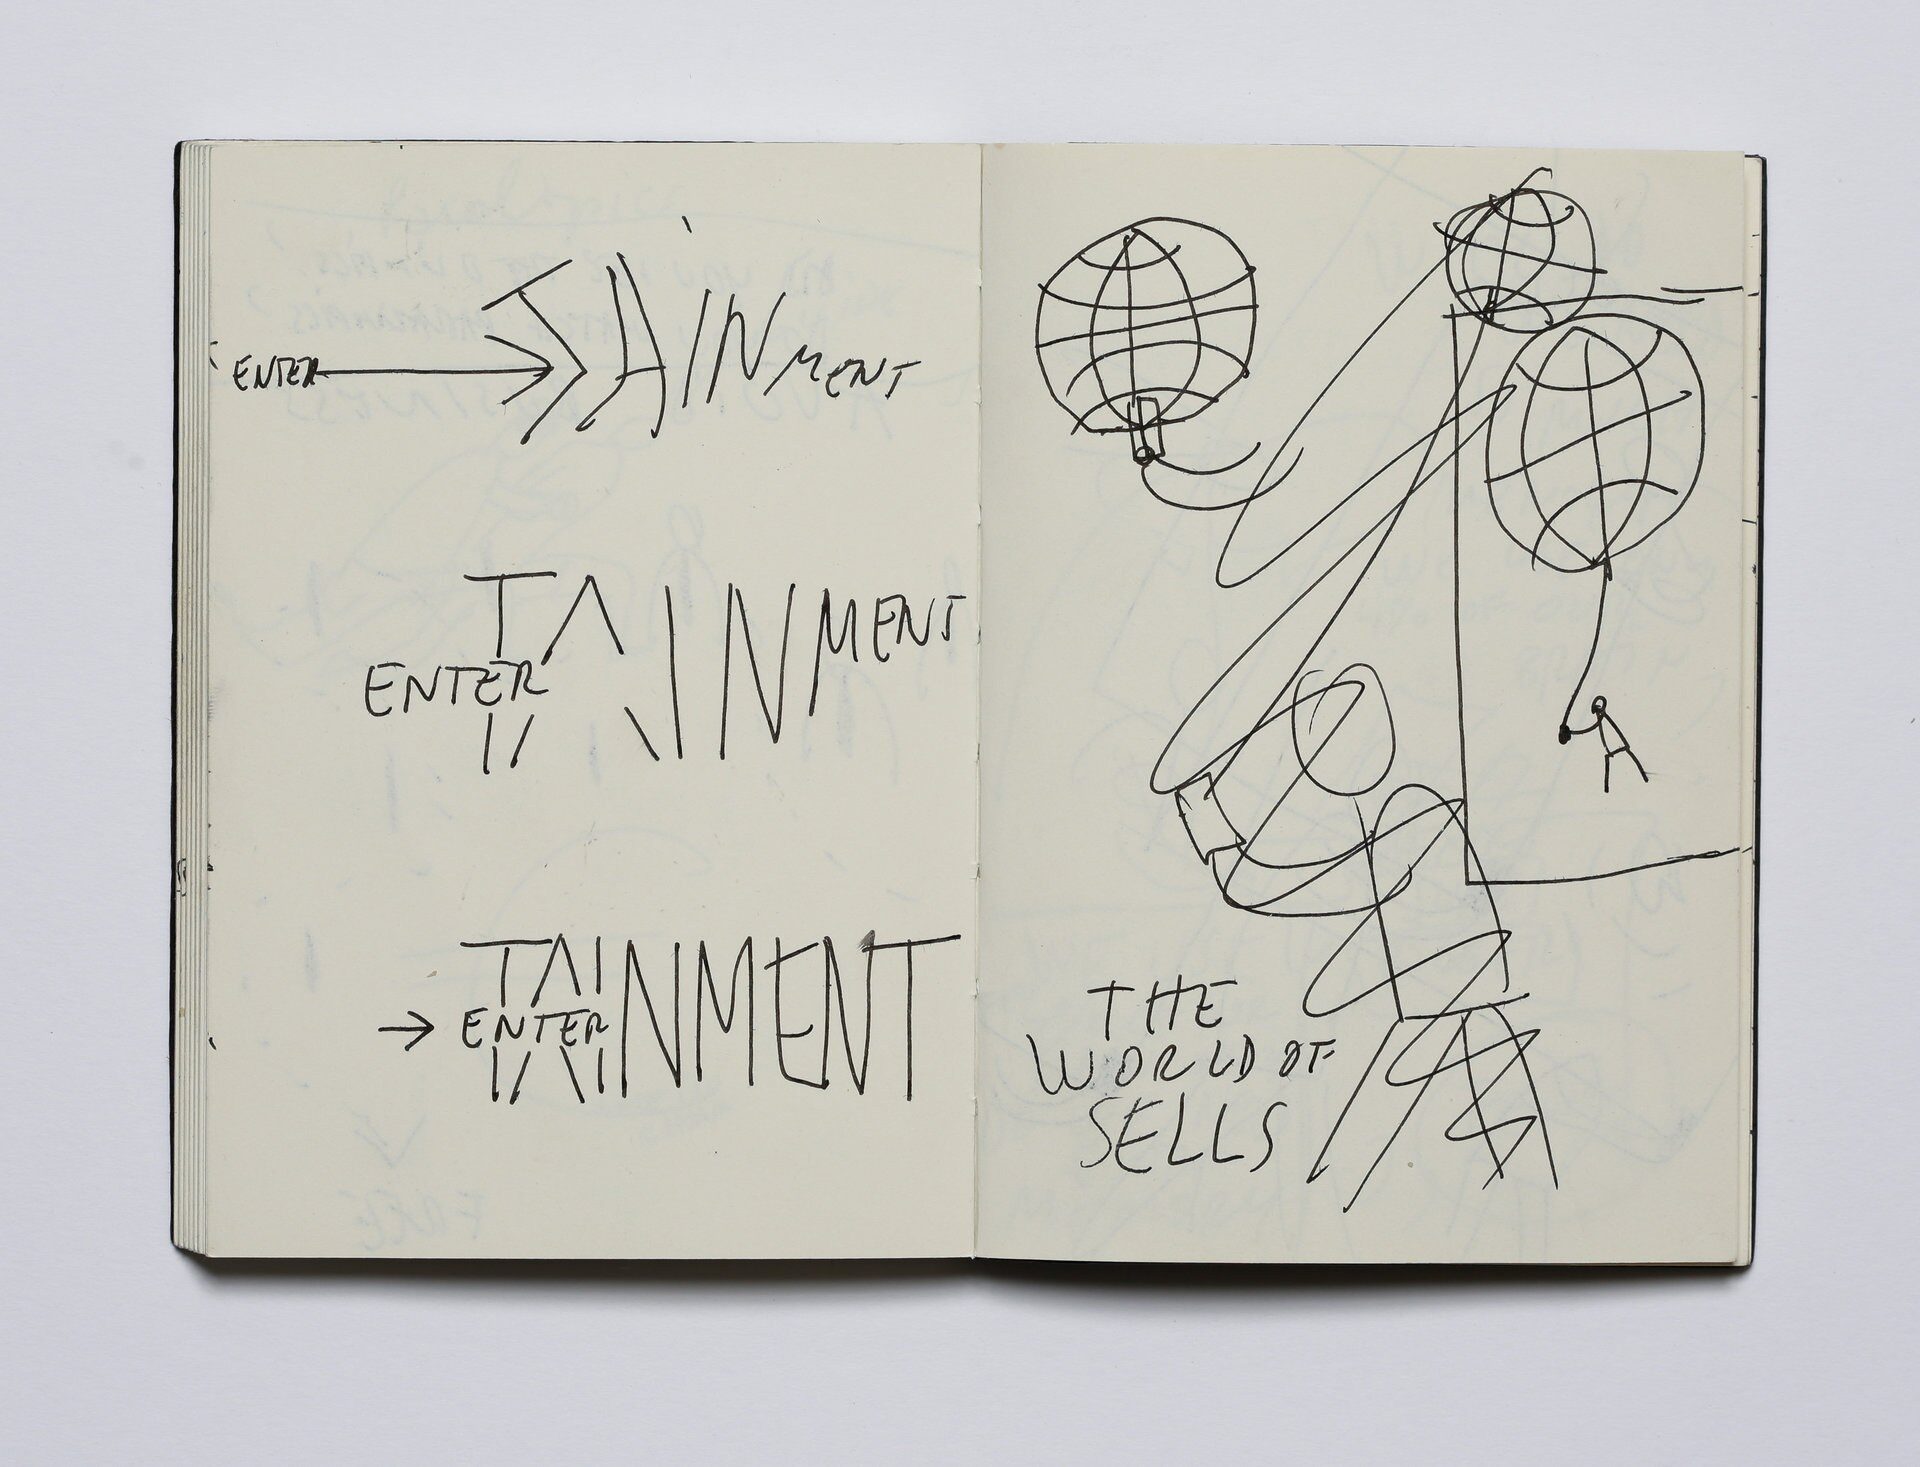 ENTER → TAINMENT
TAINMENT
ENTER
TAINMENT
→ ENTER
THE
WORLD OF
SELLS